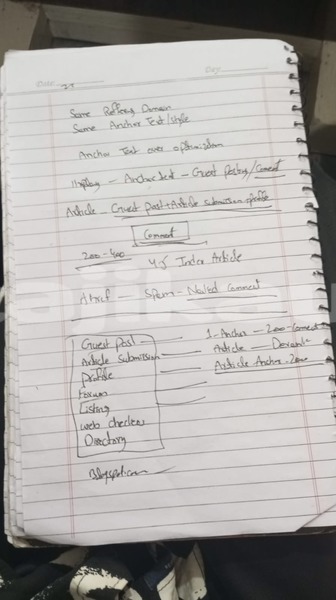 Date
Day
Same Reffering Domain
Same Anchor Text/style
Anchor Text over optimization
- Anchor text - Guest Posting/Coment
Article - Guest post + Article submission + profile
Comment
200-400
4-5 Index Article
Ahref - Spam - Naked Comment
Guest Post -
1 - Anchor - 200 - Comment
Article Submission
Article -
profile
Article Anchor - 2000
Forum
Listing
web checker
Directory